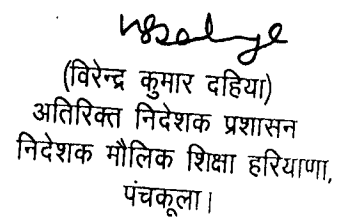 (विरेन्द्र कुमार दहिया)
अतिरिक्त निदेशक प्रशासन
निदेशक मौलिक शिक्षा हरियाणा,
पंचकूला।